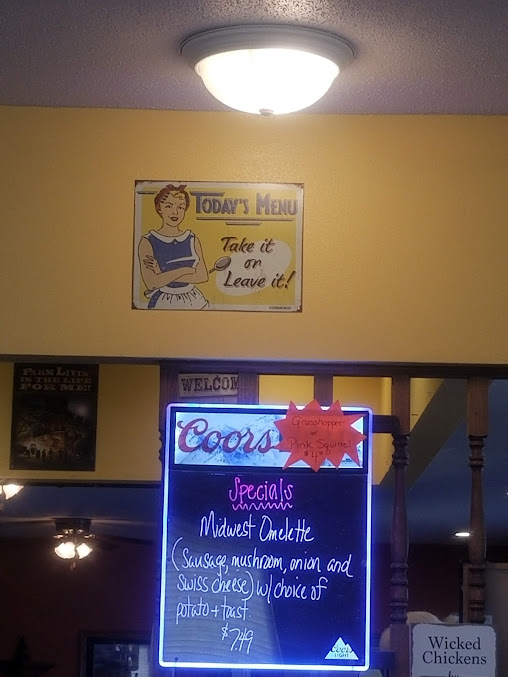 TODAY'S MENU
Take it
or
Leave it!
FARM LIVIN'
IS THE LIFE
FOR ME!
WELCOM
Coors
Grasshopper
or
Pink Squirrel
Specials
Midwest Omelette
(Sausage, mushroom, onion and
Swiss cheese) w/ choice of
potato + toast
$7.49
Coors
LIGHT
Wicked
Chickens